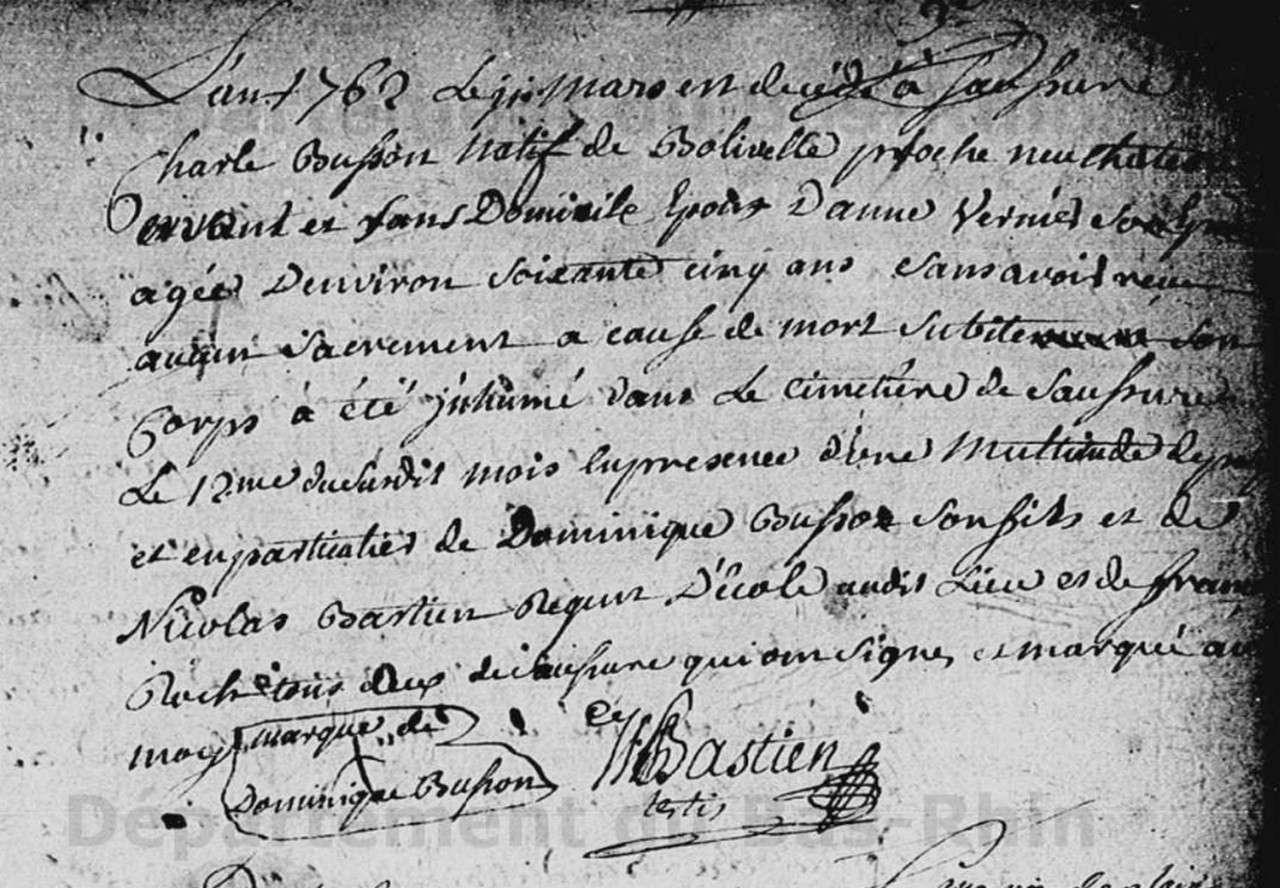 L'an 1762 Le 11 Mars est decédé à Saussure
Charle Busson Natif de Bolivelle proche neuchateau
ervant et sans Domicile Epoux D'anne Vernier son
agée D'environ soixante cinq ans sans avoir reçu
aucun sacrement a cause de mort subite son
Corps à été jnhumé dans Le Cimetiére de Saussure
Le 12me du susdit mois En presence d'une Multitude de
et en particulier de Dominique Busson son fils et de
Nicolas Bastien Regent D'école audit Lieu et de
Roch tous deux de saussure qui ont signe, et marqué
moy marque de
Dominique Busson
Bastien
testis
Département du Bas-Rhin